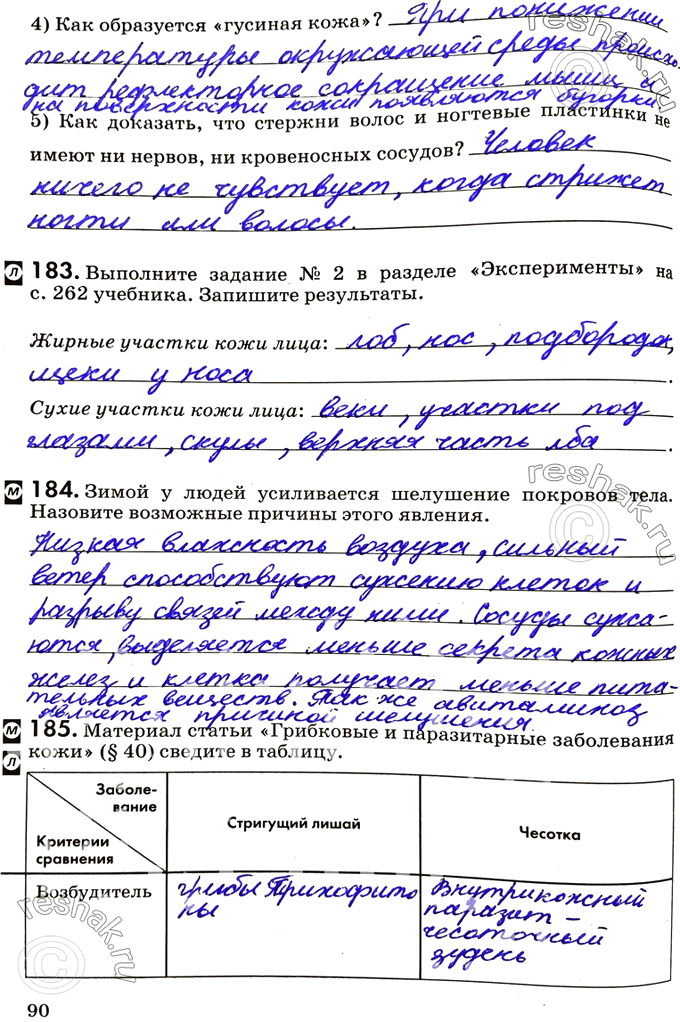 4) Как образуется «гусиная кожа»? При понижении
температуры окружающей среды происхо-
дит рефлекторное сокращение мышц и
на поверхности кожи появляются бугорки
5) Как доказать, что стержни волос и ногтевые пластинки не
имеют ни нервов, ни кровеносных сосудов? Человек
ничего не чувствует, когда стрижет
ногти или волосы.
Л 183. Выполните задание № 2 в разделе «Эксперименты» на
с. 262 учебника. Запишите результаты.
Жирные участки кожи лица: лоб, нос, подбородок,
щеки у носа.
Сухие участки кожи лица: веки, участки под
глазами, скулы, верхняя часть лба.
М 184. Зимой у людей усиливается шелушение покровов тела.
Назовите возможные причины этого явления.
Низкая влажность воздуха, сильный
ветер способствуют сужению клеток и
разрыву связей между ними. Сосуды сужа-
ются, выделяется меньше секрета кожных
желез и клетка получает меньше пита-
тельных веществ. Так же авитаминоз
является причиной шелушения.
М 185. Материал статьи «Грибковые и паразитарные заболевания
Л кожи» (§ 40) сведите в таблицу.
Заболе-
вание
Критерии
сравнения
Стригущий лишай
Чесотка
Возбудитель
грибы Трихофито
ны
Внутрикожный
паразит –
чесоточный
зудень
90
reshak.ru
©
reshak.ru
©
reshak.ru
©
reshak.ru
©